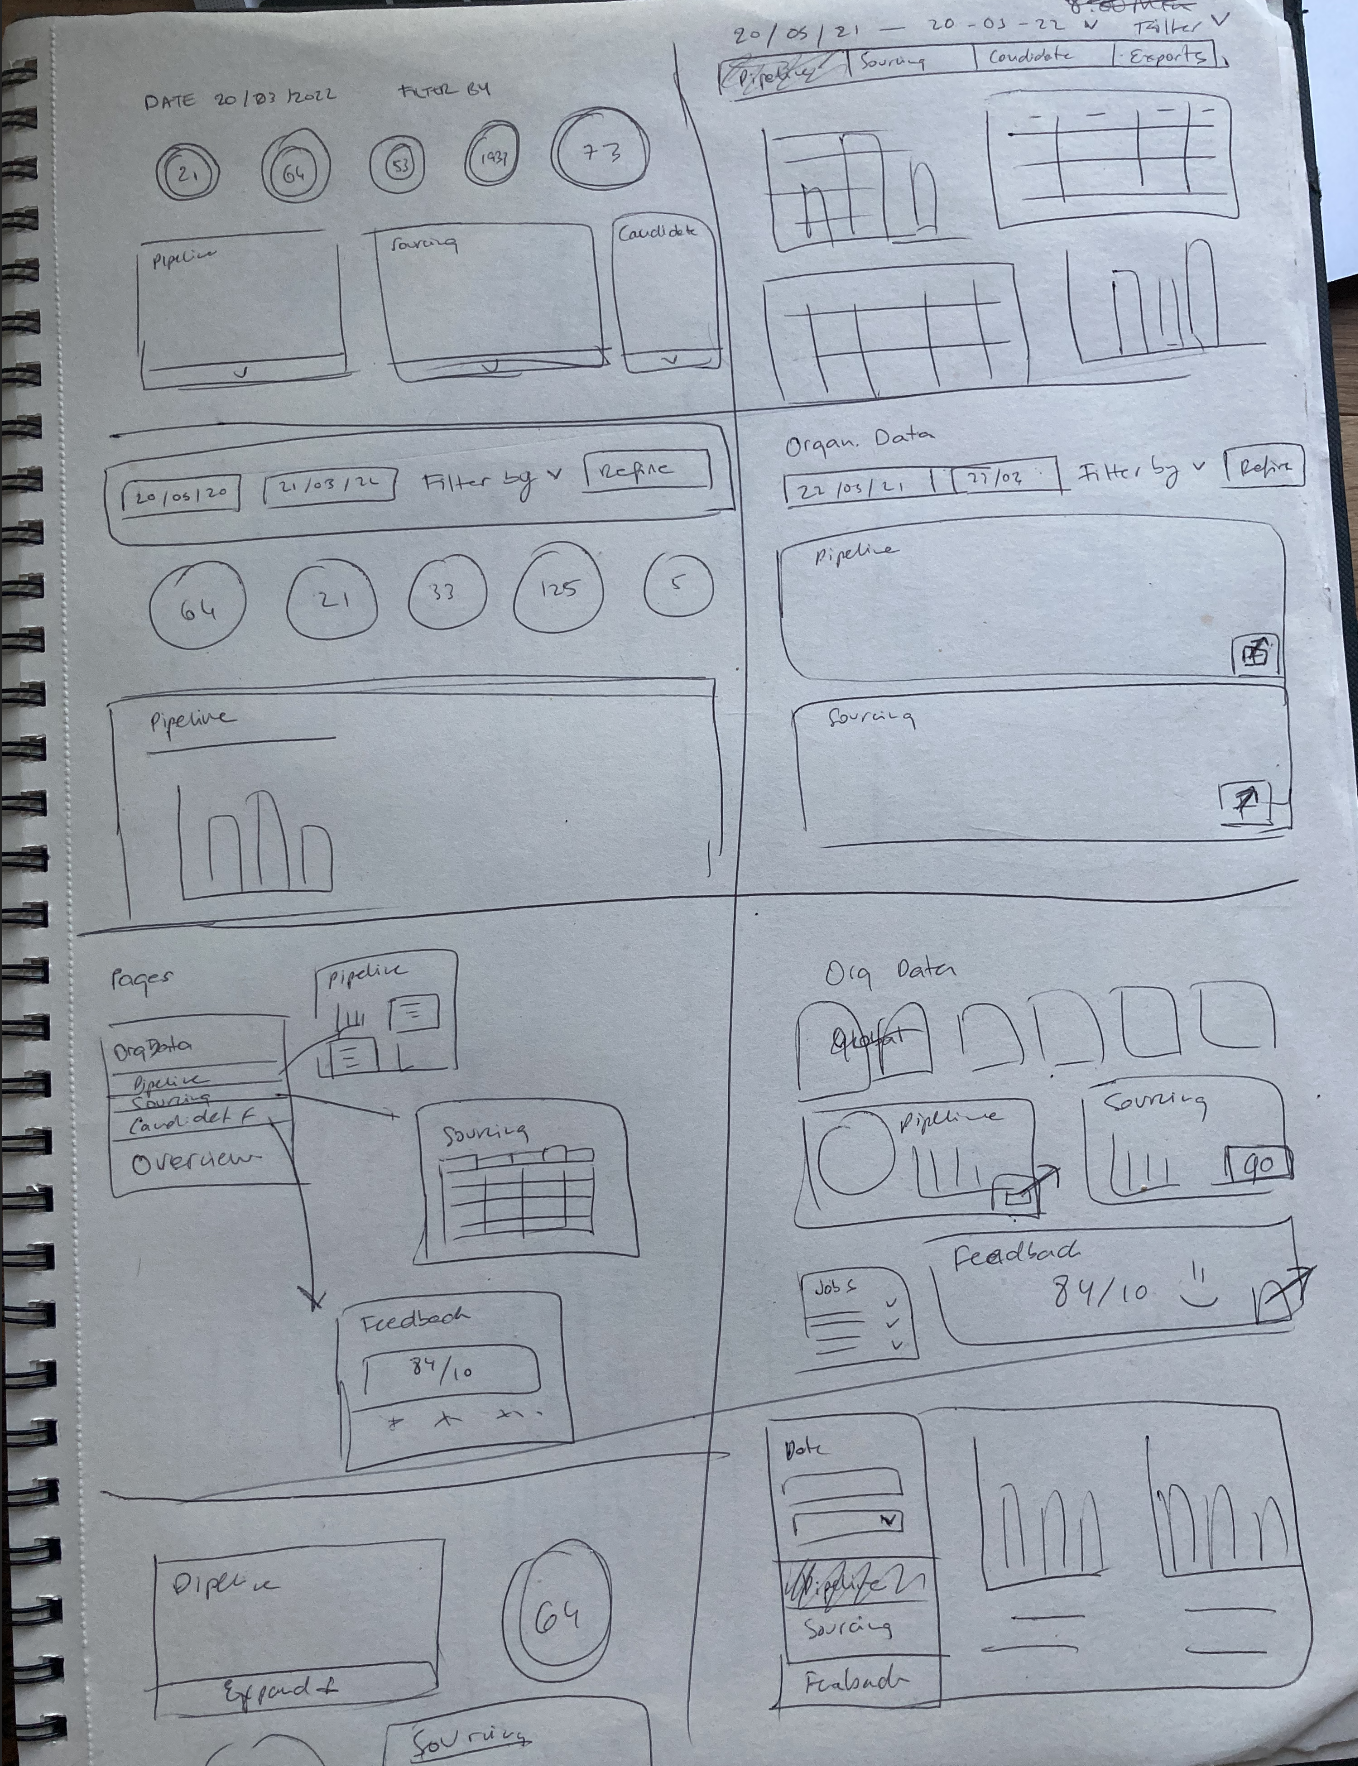 DATE 20/03/2022 FILTER BY
21 64 53 1937 73
Pipeline Sourcing Candidate
20/05/21 — 20-03-22 Filter
Pipeline Sourcing Candidate Exports
20/05/20 21/03/22 Filter by Refine
64 21 33 125 5
Pipeline
Organ. Data
22/03/21 22/03 Filter by Refine
Pipeline
Sourcing
Pages
OrgData
Pipeline
Sourcing
Candidet F
Overview
Pipeline
Sourcing
Feedback
84/10
Org Data
Pipeline
Sourcing
go
Jobs
Feedback
84/10
Pipeline
Expand +
64
Sourcing
Date
Pipeline
Sourcing
Feedback